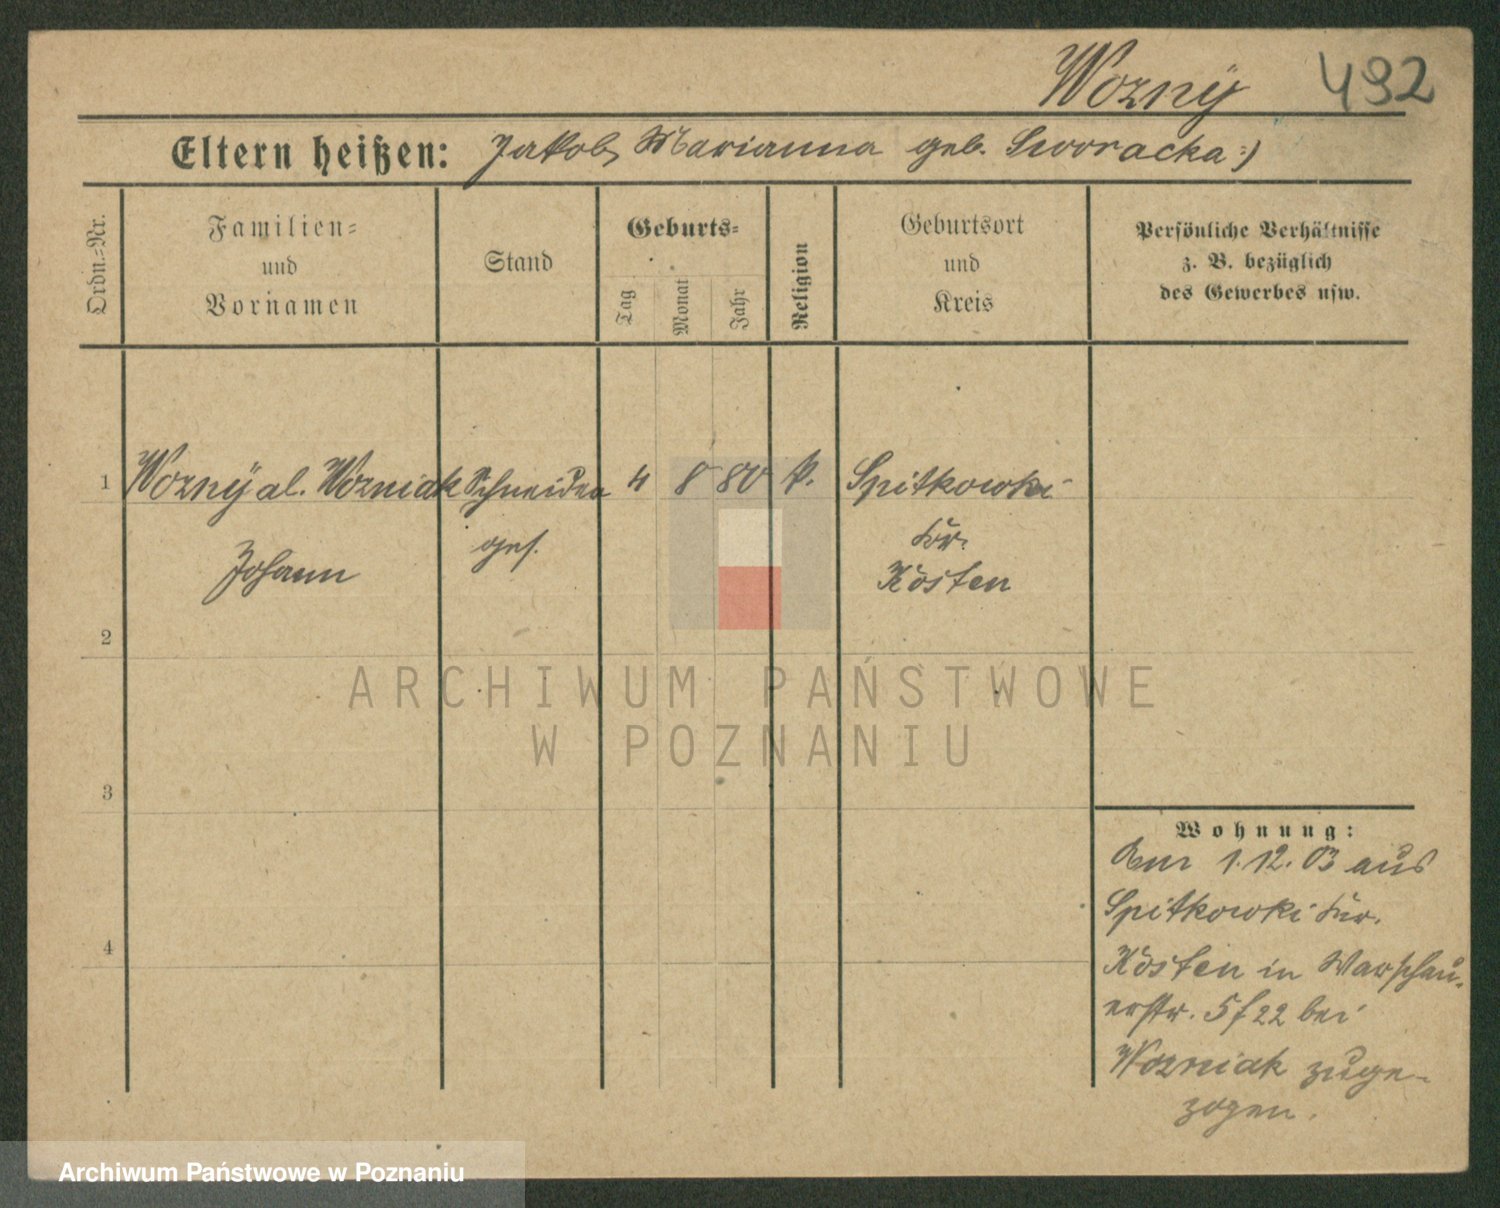 Wozny 492
Eltern heißen: Jakob, Marianna geb. Sworacka :)
Ordn.-Nr.
Familien-
und
Vornamen
Stand
Geburts-
Tag
Monat
Jahr
Religion
Geburtsort
und
Kreis
Persönliche Verhältnisse
z. B. bezüglich
des Gewerbes usw.
1 Woznÿ al. Wozniak Schneider 4 8 80 k. Spitkowki
ges. Kr.
Johann Kosten
2
3
4
Wohnung:
Am 1.12.03 aus
Spitkowki Kr.
Kosten in Warschau-
erstr. 5 f 22 bei
Wozniak zuge-
zogen.
ARCHIWUM PAŃSTWOWE
W POZNANIU
Archiwum Państwowe w Poznaniu